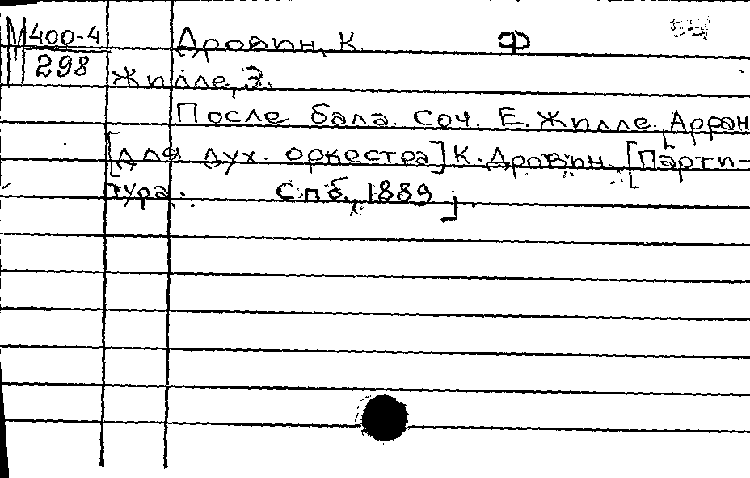 М 400-4 Дровин, К. Ф
298 Жилле, Э.
После бала. Соч. Е. Жилле. Арран
[для дух. оркестра] К. Дровин. [Парти-
тура. Спб., 1889]